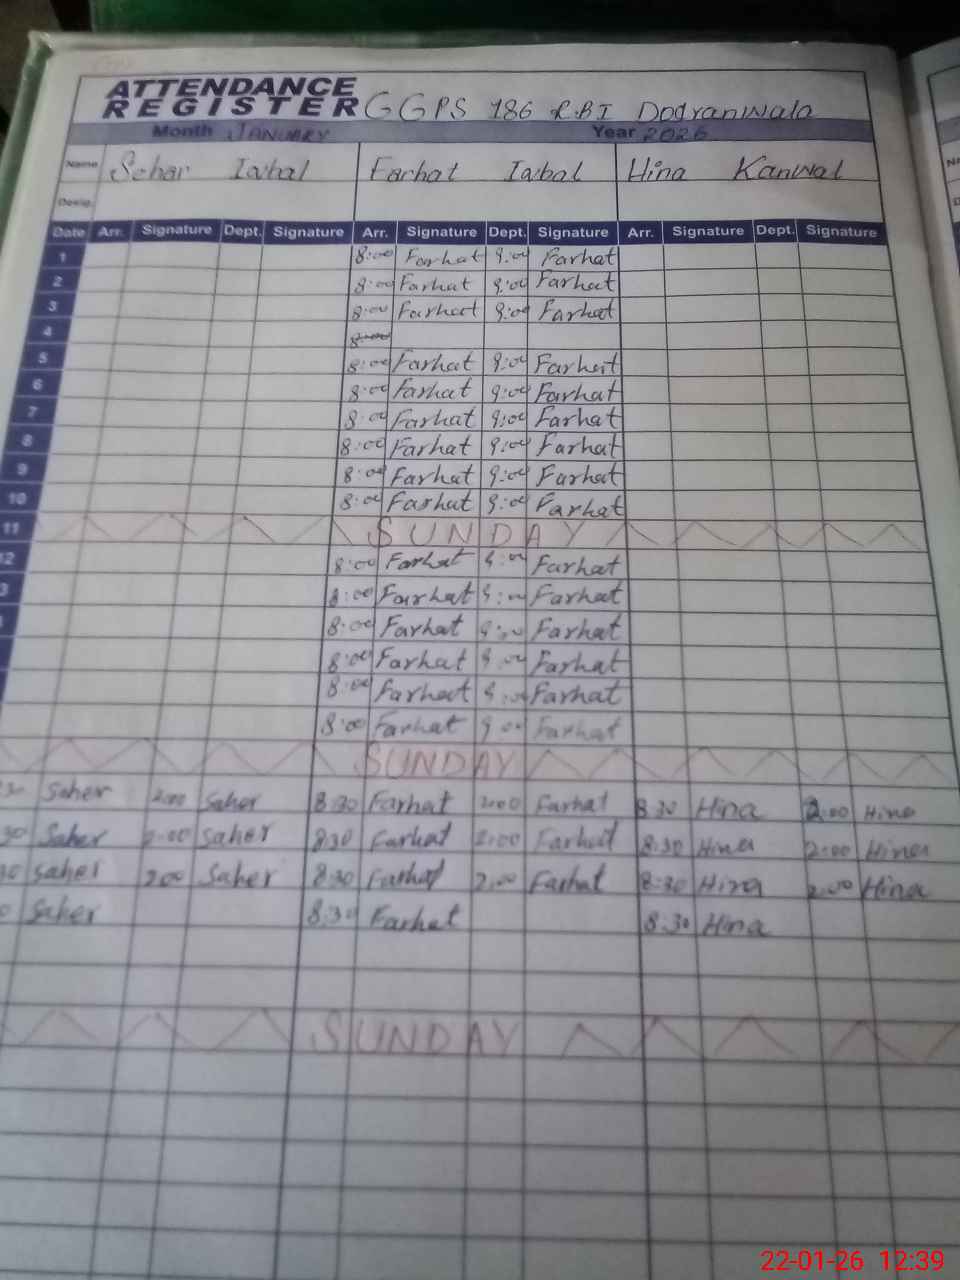 ATTENDANCE
REGISTER GGPS 186 R.B I Dodranwala
Month JANUARY Year 2026
Name Sehar Iqbal Farhat Iqbal Hina Kanwal
Desig.
Date Arr. Signature Dept. Signature Arr. Signature Dept. Signature Arr. Signature Dept. Signature
1 8:00 Farhat 9:00 Farhat
2 8:00 Farhat 9:00 Farhat
3 8:00 Farhat 9:00 Farhat
4 8:00
5 8:00 Farhat 9:00 Farhat
6 8:00 Farhat 9:00 Farhat
7 8:00 Farhat 9:00 Farhat
8 8:00 Farhat 9:00 Farhat
9 8:00 Farhat 9:00 Farhat
10 8:00 Farhat 9:00 Farhat
11 SUNDAY
12 8:00 Farhat 9:00 Farhat
3 8:00 Farhat 9:00 Farhat
8:00 Farhat 9:00 Farhat
8:00 Farhat 9:00 Farhat
8:00 Farhat 9:00 Farhat
8:00 Farhat 9:00 Farhat
SUNDAY
30 Saher 2:00 Saher 8:30 Farhat 2:00 Farhat 8:30 Hina 2:00 Hina
30 Saher 2:00 Saher 8:30 Farhat 2:00 Farhat 8:30 Hina 2:00 Hina
30 Saher 2:00 Saher 8:30 Farhat 2:00 Farhat 8:30 Hina 2:00 Hina
0 Saher 8:30 Farhat 8:30 Hina
SUNDAY
22-01-26 12:39